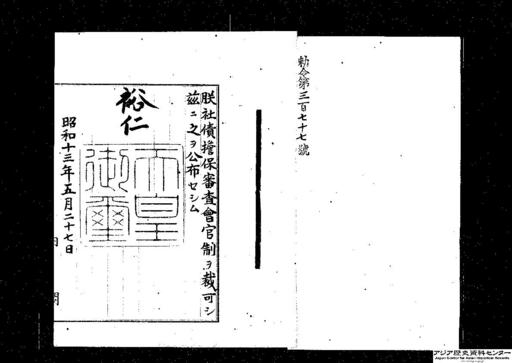 勅令第三百七十七號
朕社債擔保審査會官制ヲ裁可シ
茲ニ之ヲ公布セシム
裕仁
天皇
御璽
昭和十三年五月二十七日
アジア歴史資料センター
Japan Center for Asian Historical Records